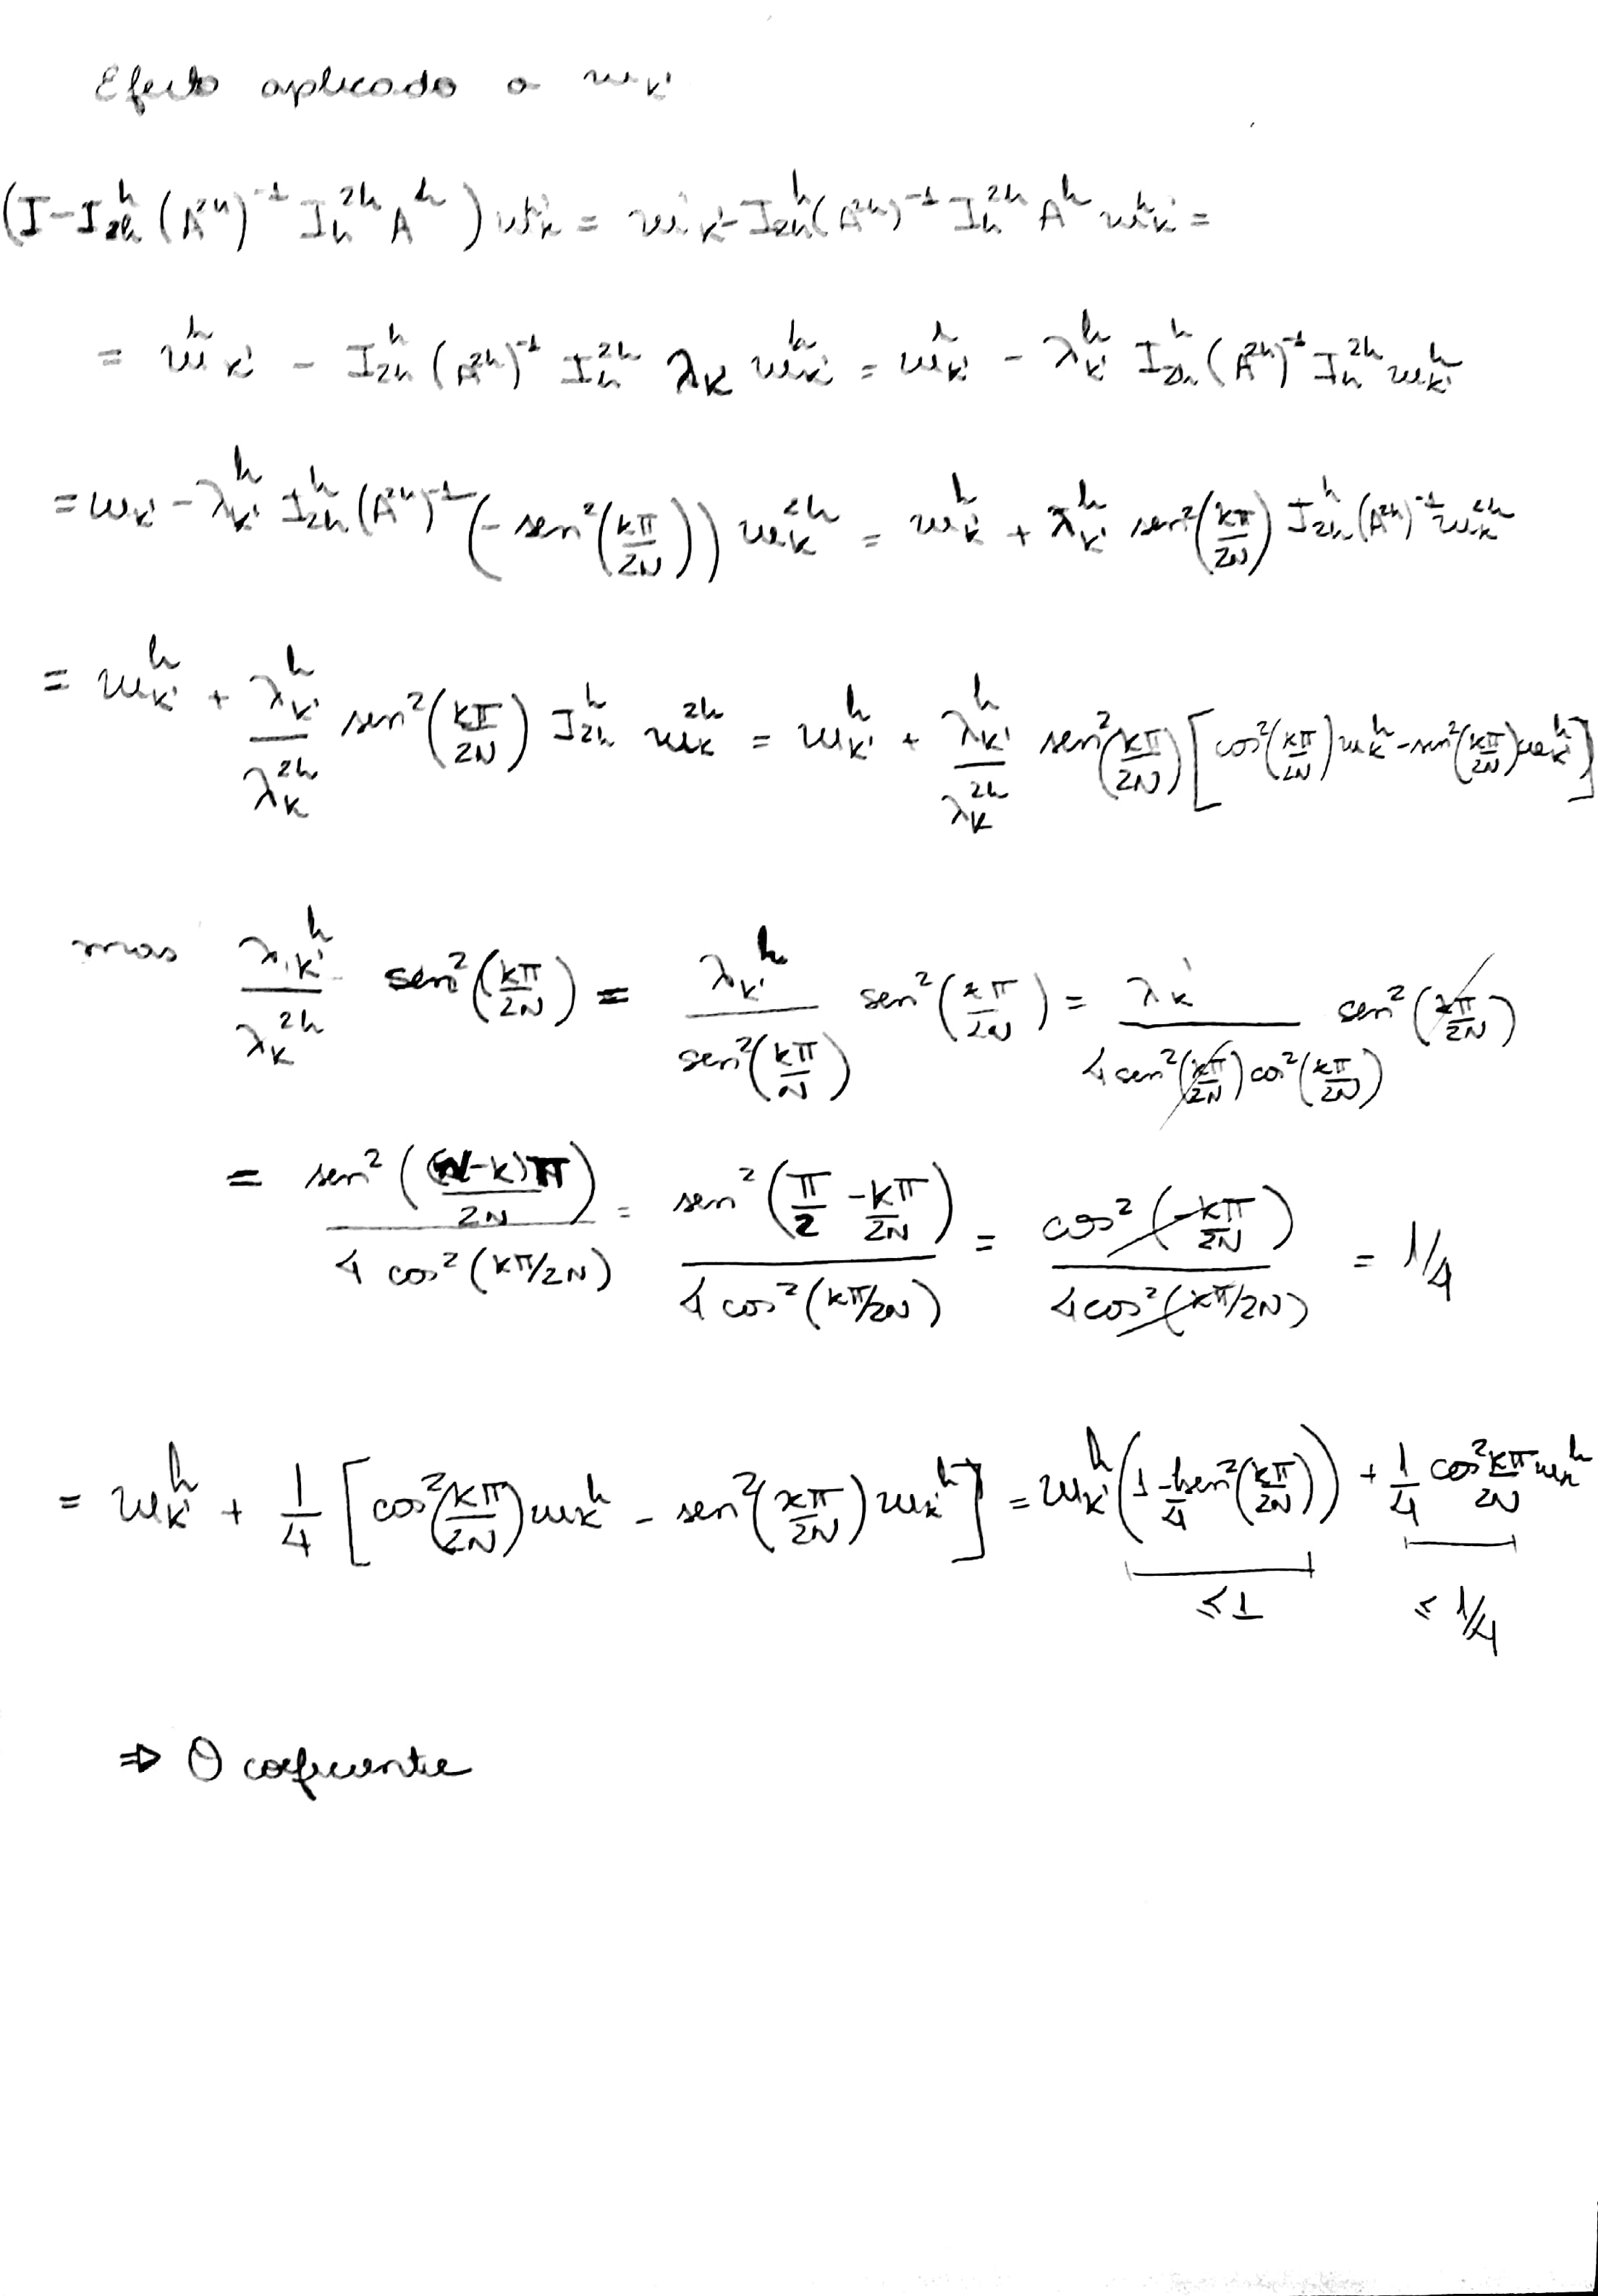 Efeito aplicado a w_k'
(I - I_{2h}^h (A^{2h})^{-1} I_h^{2h} A^h) w_{k'}^h = w_{k'}^h - I_{2h}^h (A^{2h})^{-1} I_h^{2h} A^h w_{k'}^h =
= w_{k'}^h - I_{2h}^h (A^{2h})^{-1} I_h^{2h} λ_k w_{k'}^h = w_{k'}^h - λ_{k'}^h I_{2h}^h (A^{2h})^{-1} I_h^{2h} w_{k'}^h
= w_{k'} - λ_{k'}^h I_{2h}^h (A^{2h})^{-1} (- sen^2(kπ/2N)) w_k^{2h} = w_{k'}^h + λ_{k'}^h sen^2(kπ/2N) I_{2h}^h (A^{2h})^{-1} w_k^{2h}
= w_{k'}^h + λ_{k'}^h/λ_k^{2h} sen^2(kπ/2N) I_{2h}^h w_k^{2h} = w_{k'}^h + λ_{k'}^h/λ_k^{2h} sen^2(kπ/2N) [cos^2(kπ/2N) w_k^h - sen^2(kπ/2N) w_{k'}^h]
mas λ_{k'}^h/λ_k^{2h} sen^2(kπ/2N) = λ_{k'}^h/sen^2(kπ/N) sen^2(kπ/2N) = λ_k'/(4 sen^2(kπ/2N) cos^2(kπ/2N)) sen^2(kπ/2N)
= sen^2((N-k)π/2N)/(4 cos^2(kπ/2N)) = sen^2(π/2 - kπ/2N)/(4 cos^2(kπ/2N)) = cos^2(-kπ/2N)/(4 cos^2(kπ/2N)) = 1/4
= w_{k'}^h + 1/4 [cos^2(kπ/2N) w_k^h - sen^2(kπ/2N) w_{k'}^h] = w_{k'}^h (1 - 1/4 sen^2(kπ/2N)) + 1/4 cos^2 kπ/2N w_k^h
≤ 1 ≤ 1/4
⇒ O coeficiente